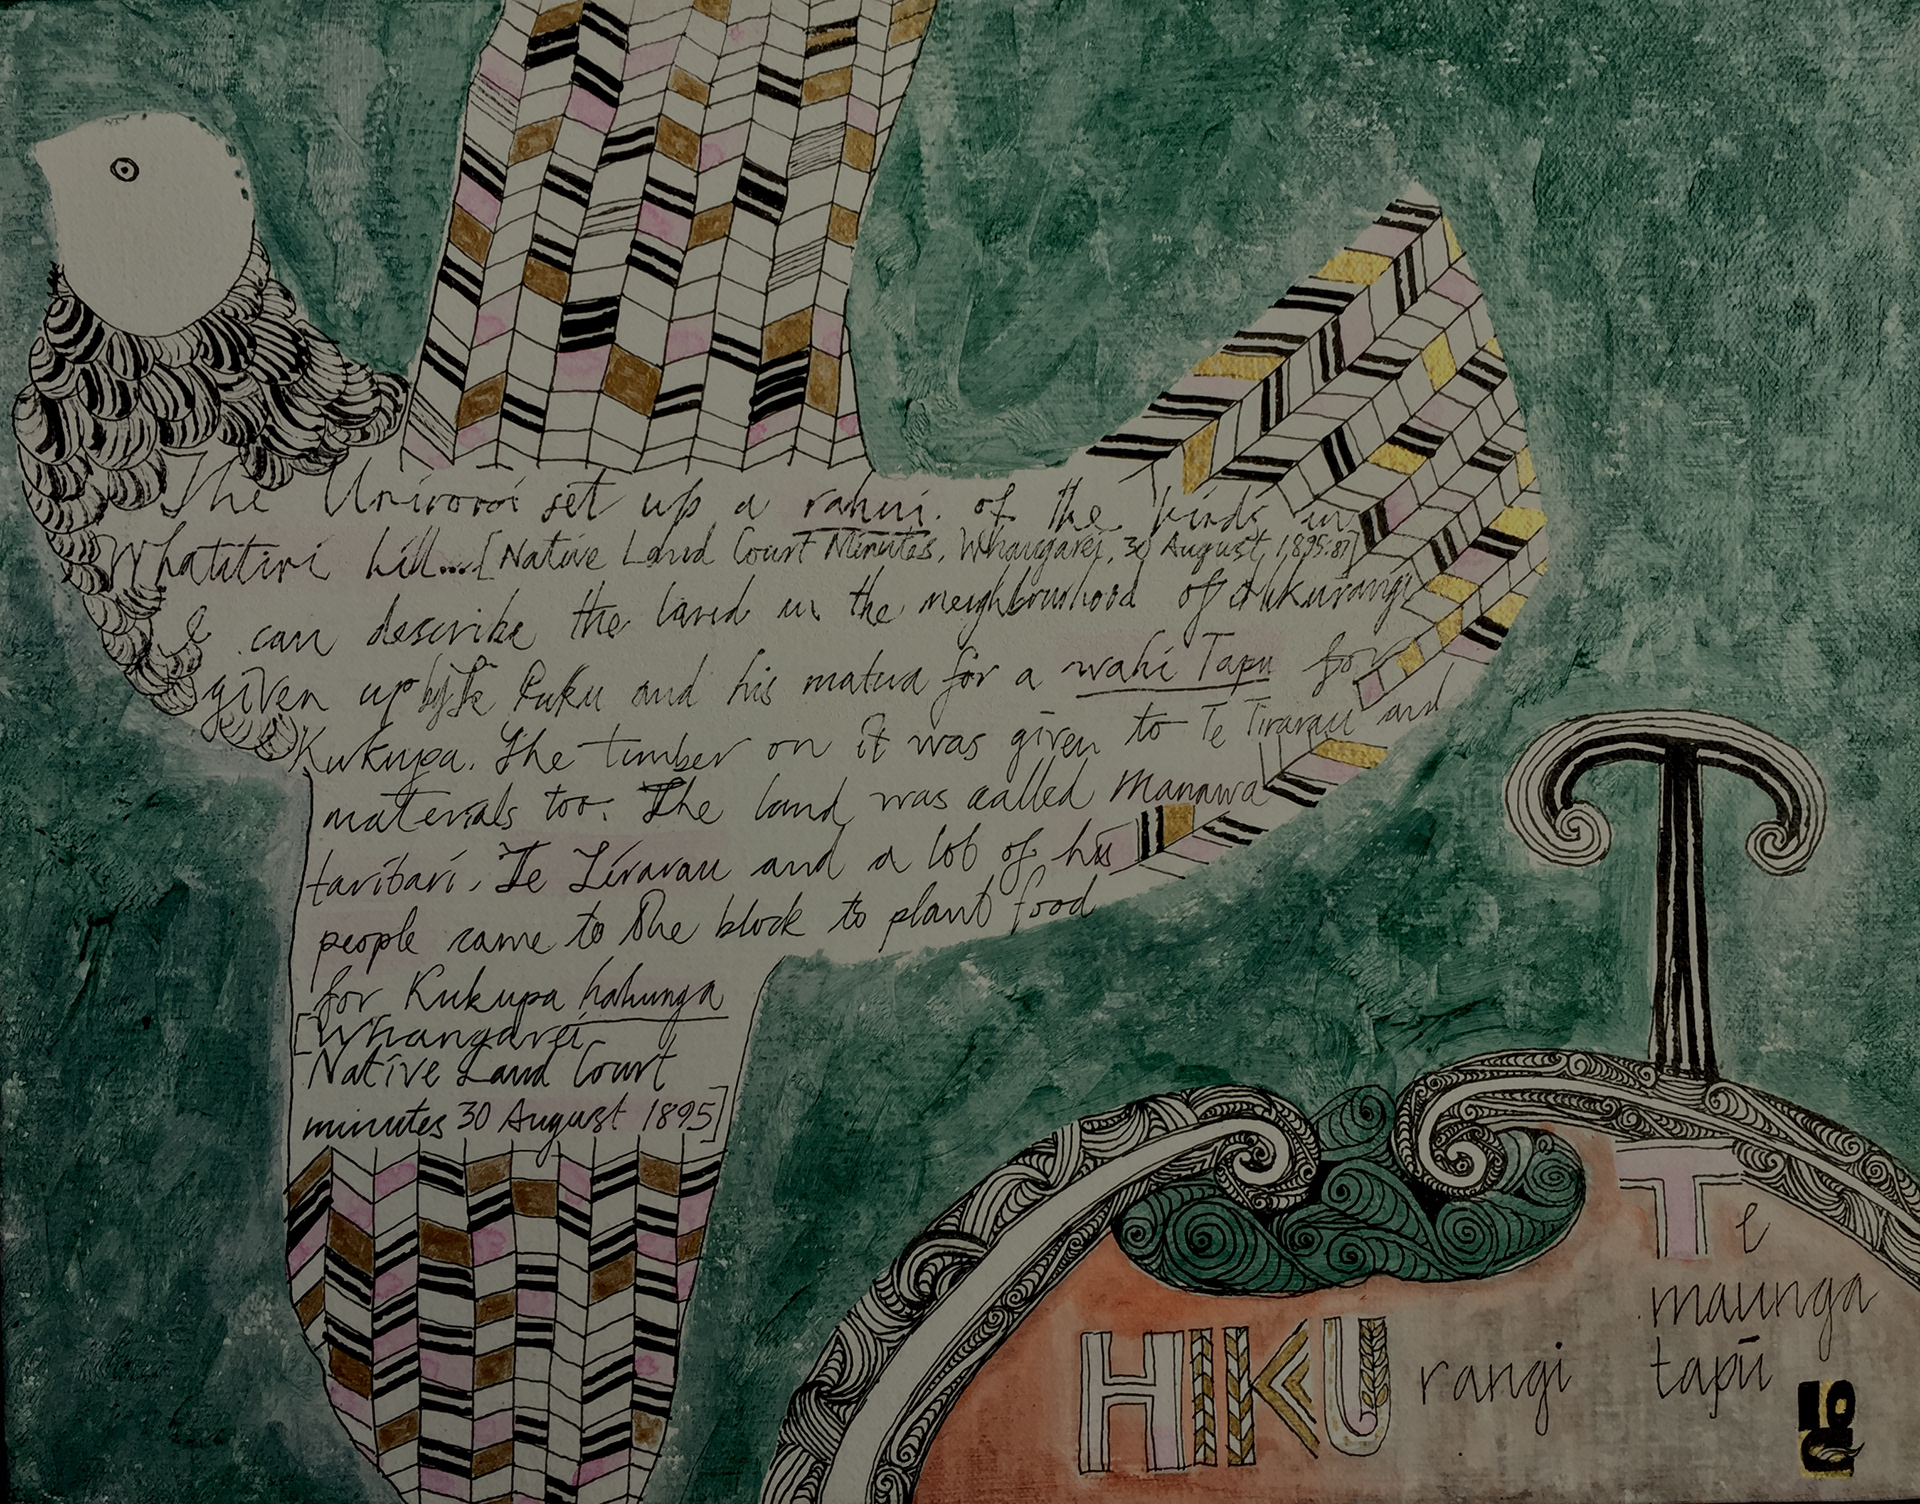 The Uriroroi set up a rahui. of the birds in
Whatitiri hill... [Native Land Court Minutes, Whangarei, 30 August, 1895:87]
I can describe the land in the neighbourhood of Hikurangi
given up by Te Puku and his matua for a wahi Tapu for
Kukupa. The timber on it was given to Te Tirarau and
materials too. The land was called Manawa
taritari. Te Tirarau and a lot of his
people came to the block to plant food
for Kukupa hahunga
[Whangarei
Native Land Court
minutes 30 August 1895]
Te
maunga
HIKU rangi tapū